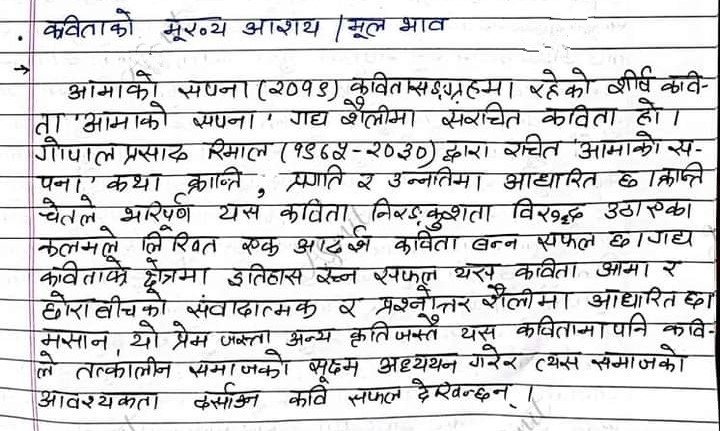 . कविताको मूख्य आशय / मूल भाव
→ आमाको सपना (२०१९) कवितासङ्ग्रहमा रहेको शीर्ष कवि-
ता 'आमाको सपना' गद्य शैलीमा संरचित कविता हो ।
गोपाल प्रसाद रिमाल (१९६५-२०३०) द्वारा रचित 'आमाको स-
पना' कथा क्रान्ति, प्रगति र उन्नतिमा आधारित छ । क्रान्ति
चेतले भरिपूर्ण यस कविता निरङ्कुशता विरुद्ध उठाएका
कलमले लिखित एक आदर्श कविता बन्न सफल छ । गद्य
कविताको क्षेत्रमा इतिहास रच्न सफल यस कविता आमा र
छोरा बीचको संवादात्मक र प्रश्नोत्तर शैलीमा आधारित छ ।
मसान, यो प्रेम जस्ता अन्य कृति जस्तै यस कवितामा पनि कवि-
ले तत्कालीन समाजको सूक्ष्म अध्ययन गरेर त्यस समाजको
आवश्यकता दर्साउन कवि सफल देखिन्छन् ।